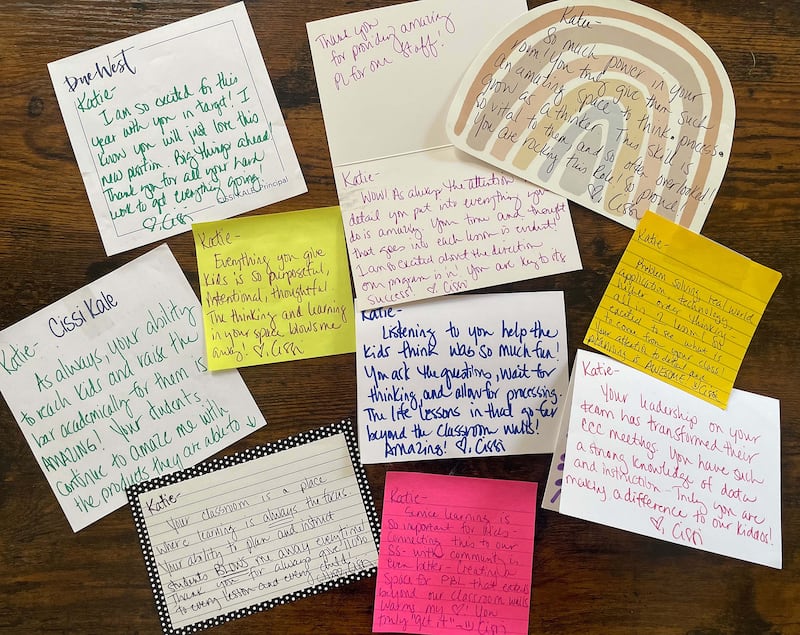 Due West
Katie-
I am so excited for this
year with you in Target! I
know you will just love this
new position. Big things ahead!
Thank you for all your hard
work to get everything going.
♡. Cissi
Principal
Thank you
for providing amazing
PL for our staff!
Katie-
WOW! As always the attention
detail you put into everything you
do is amazing. Your time and thought
that goes into each lesson is evident!
I am so excited about the direction
our program is in! You are key to its
success! ♡ Cissi
Katie-
So much power in your
room! You truly give them such
an amazing space to think, process,
grow as a thinker. This skill is
so vital to them and so often overlooked!
You are rocking this role! So proud!
♡, Cissi
Katie-
Everything you give
kids is so purposeful,
intentional, thoughtful.
The thinking and learning
in your space blows me
away! ♡. Cissi
Katie-
Problem solving, real world
application, technology,
higher order thinking-
all in I
to see what is
to come from your class!
Your attention to detail and
is AWESOME Cissi
Cissi Kale
Katie-
As always, your ability
to reach kids and raise the
bar academically for them is
AMAZING! Your students
continue to amaze me with
the products they are able to ↓
Katie-
Listening to you help the
kids think was so much fun!
You ask the question, wait for
thinking and allow for processing.
The life lessons in that go far
beyond the classroom walls!
Amazing! ♡. Cissi
Katie-
Your leadership on your
team has transformed their
CCC meetings. You have such
a strong knowledge of data
and instruction- Truly you are
making a difference to our kiddos!
♡, Cissi
Katie-
Your classroom is a place
where learning is always the focus.
Your ability to plan and instruct
students BLOWS me away everytime!
Thank you for always give 110%
to every lesson and every child!
Katie-
Service learning is
so important for kids-
connecting this to our
SS- with community is
even better- Creating a
space for PBL that extends
beyond our classroom walls
warms my ♡! You
truly "get it" Cissi